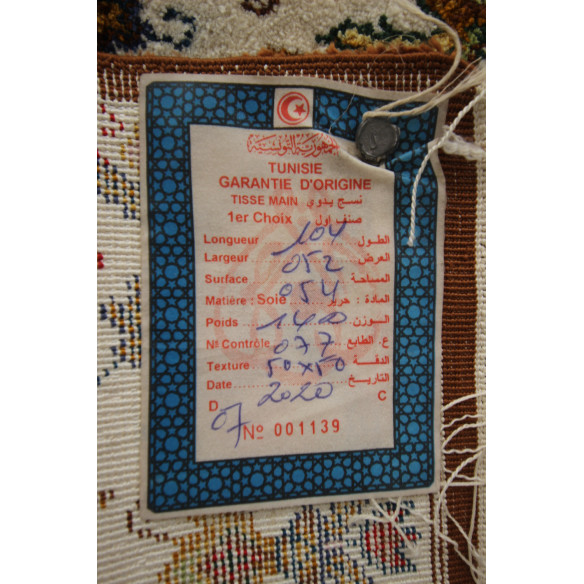 الجمهورية التونسية
TUNISIE
GARANTIE D'ORIGINE
TISSE MAIN نسج يدوي
1er Choix صنف أول
Longueur 104 الطول
Largeur 052 العرض
Surface 054 المساحة
Matière : Soie حرير : المادة
Poids 1400 الوزن
Nº Contrôle 077 ع. الطابع
Texture 50x50 الدقة
Date 2020 التاريخ
D C
07
Nº 001139